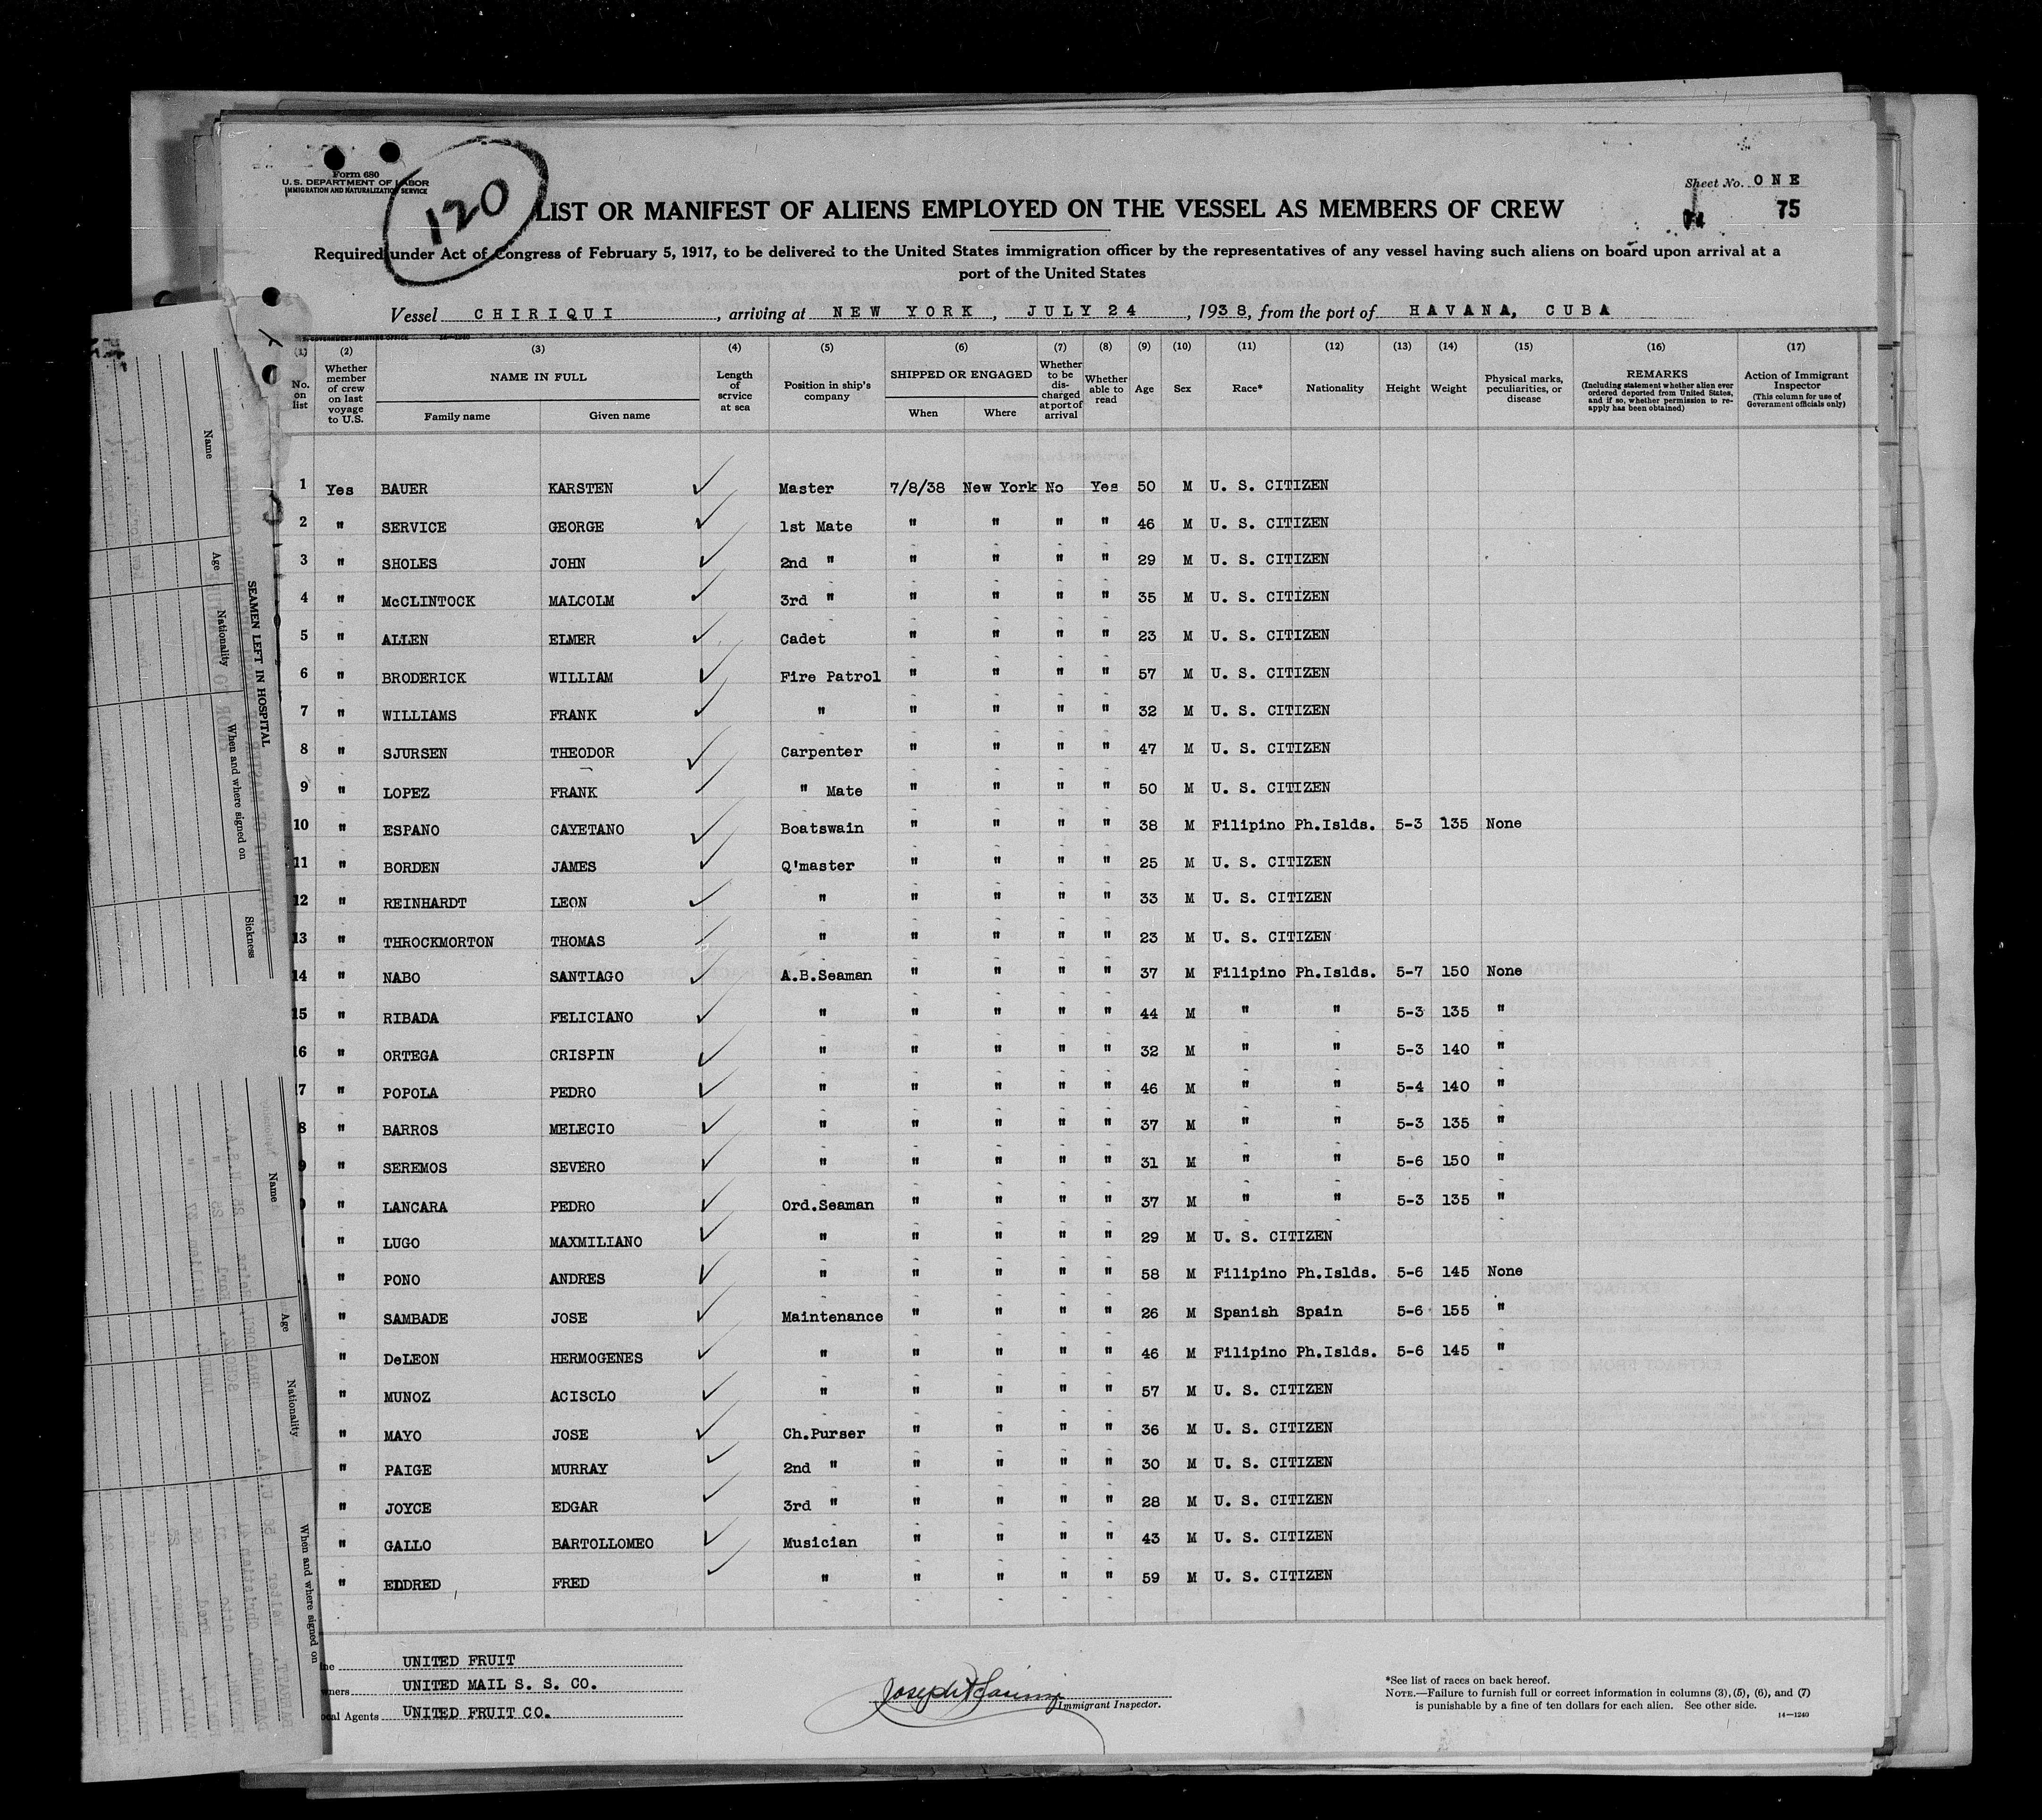 Form 680
U. S. DEPARTMENT OF LABOR
IMMIGRATION AND NATURALIZATION SERVICE
120
Sheet No. ONE
75
LIST OR MANIFEST OF ALIENS EMPLOYED ON THE VESSEL AS MEMBERS OF CREW
Required under Act of Congress of February 5, 1917, to be delivered to the United States immigration officer by the representatives of any vessel having such aliens on board upon arrival at a
port of the United States
Vessel CHIRIQUI, arriving at NEW YORK, JULY 24, 1938, from the port of HAVANA, CUBA
(1) (2) (3) (4) (5) (6) (7) (8) (9) (10) (11) (12) (13) (14) (15) (16) (17)
No. on list Whether member of crew on last voyage to U.S. NAME IN FULL Family name Given name Length of service at sea Position in ship's company SHIPPED OR ENGAGED When Where Whether to be discharged at port of arrival Whether able to read Age Sex Race* Nationality Height Weight Physical marks, peculiarities, or disease REMARKS (Including statement whether alien ever ordered deported from United States, and if so, whether permission to reapply has been obtained) Action of Immigrant Inspector (This column for use of Government officials only)
1 Yes BAUER KARSTEN ✓ Master 7/8/38 New York No Yes 50 M U. S. CITIZEN
2 " SERVICE GEORGE ✓ 1st Mate " " " " 46 M U. S. CITIZEN
3 " SHOLES JOHN ✓ 2nd " " " " " 29 M U. S. CITIZEN
4 " McCLINTOCK MALCOLM ✓ 3rd " " " " " 35 M U. S. CITIZEN
5 " ALLEN ELMER ✓ Cadet " " " " 23 M U. S. CITIZEN
6 " BRODERICK WILLIAM ✓ Fire Patrol " " " " 57 M U. S. CITIZEN
7 " WILLIAMS FRANK ✓ " " " " " 32 M U. S. CITIZEN
8 " SJURSEN THEODOR ✓ Carpenter " " " " 47 M U. S. CITIZEN
9 " LOPEZ FRANK ✓ " Mate " " " " 50 M U. S. CITIZEN
10 " ESPANO CAYETANO ✓ Boatswain " " " " 38 M Filipino Ph.Islds. 5-3 135 None
11 " BORDEN JAMES ✓ Q'master " " " " 25 M U. S. CITIZEN
12 " REINHARDT LEON ✓ " " " " " 33 M U. S. CITIZEN
13 " THROCKMORTON THOMAS ✓ " " " " " 23 M U. S. CITIZEN
14 " NABO SANTIAGO ✓ A.B.Seaman " " " " 37 M Filipino Ph.Islds. 5-7 150 None
15 " RIBADA FELICIANO ✓ " " " " " 44 M " " 5-3 135 "
16 " ORTEGA CRISPIN ✓ " " " " " 32 M " " 5-3 140 "
7 " POPOLA PEDRO ✓ " " " " " 46 M " " 5-4 140 "
8 " BARROS MELECIO ✓ " " " " " 37 M " " 5-3 135 "
9 " SEREMOS SEVERO ✓ " " " " " 31 M " " 5-6 150 "
" LANCARA PEDRO ✓ Ord.Seaman " " " " 37 M " " 5-3 135 "
" LUGO MAXMILIANO ✓ " " " " " 29 M U. S. CITIZEN
" PONO ANDRES ✓ " " " " " 58 M Filipino Ph.Islds. 5-6 145 None
" SAMBADE JOSE ✓ Maintenance " " " " 26 M Spanish Spain 5-6 155 "
" DeLEON HERMOGENES ✓ " " " " " 46 M Filipino Ph.Islds. 5-6 145 "
" MUNOZ ACISCLO ✓ " " " " " 57 M U. S. CITIZEN
" MAYO JOSE ✓ Ch.Purser " " " " 36 M U. S. CITIZEN
" PAIGE MURRAY ✓ 2nd " " " " " 30 M U. S. CITIZEN
" JOYCE EDGAR ✓ 3rd " " " " " 28 M U. S. CITIZEN
" GALLO BARTOLLOMEO ✓ Musician " " " " 43 M U. S. CITIZEN
" ELDRED FRED ✓ " " " " " 59 M U. S. CITIZEN
UNITED FRUIT
UNITED MAIL S. S. CO.
Agents UNITED FRUIT CO.
Immigrant Inspector.
*See list of races on back hereof.
NOTE.—Failure to furnish full or correct information in columns (3), (5), (6), and (7)
is punishable by a fine of ten dollars for each alien. See other side.
14—1240
SEAMEN LEFT IN HOSPITAL
Name Age Nationality When and where signed on Sickness
Name Age Nationality When and where signed on